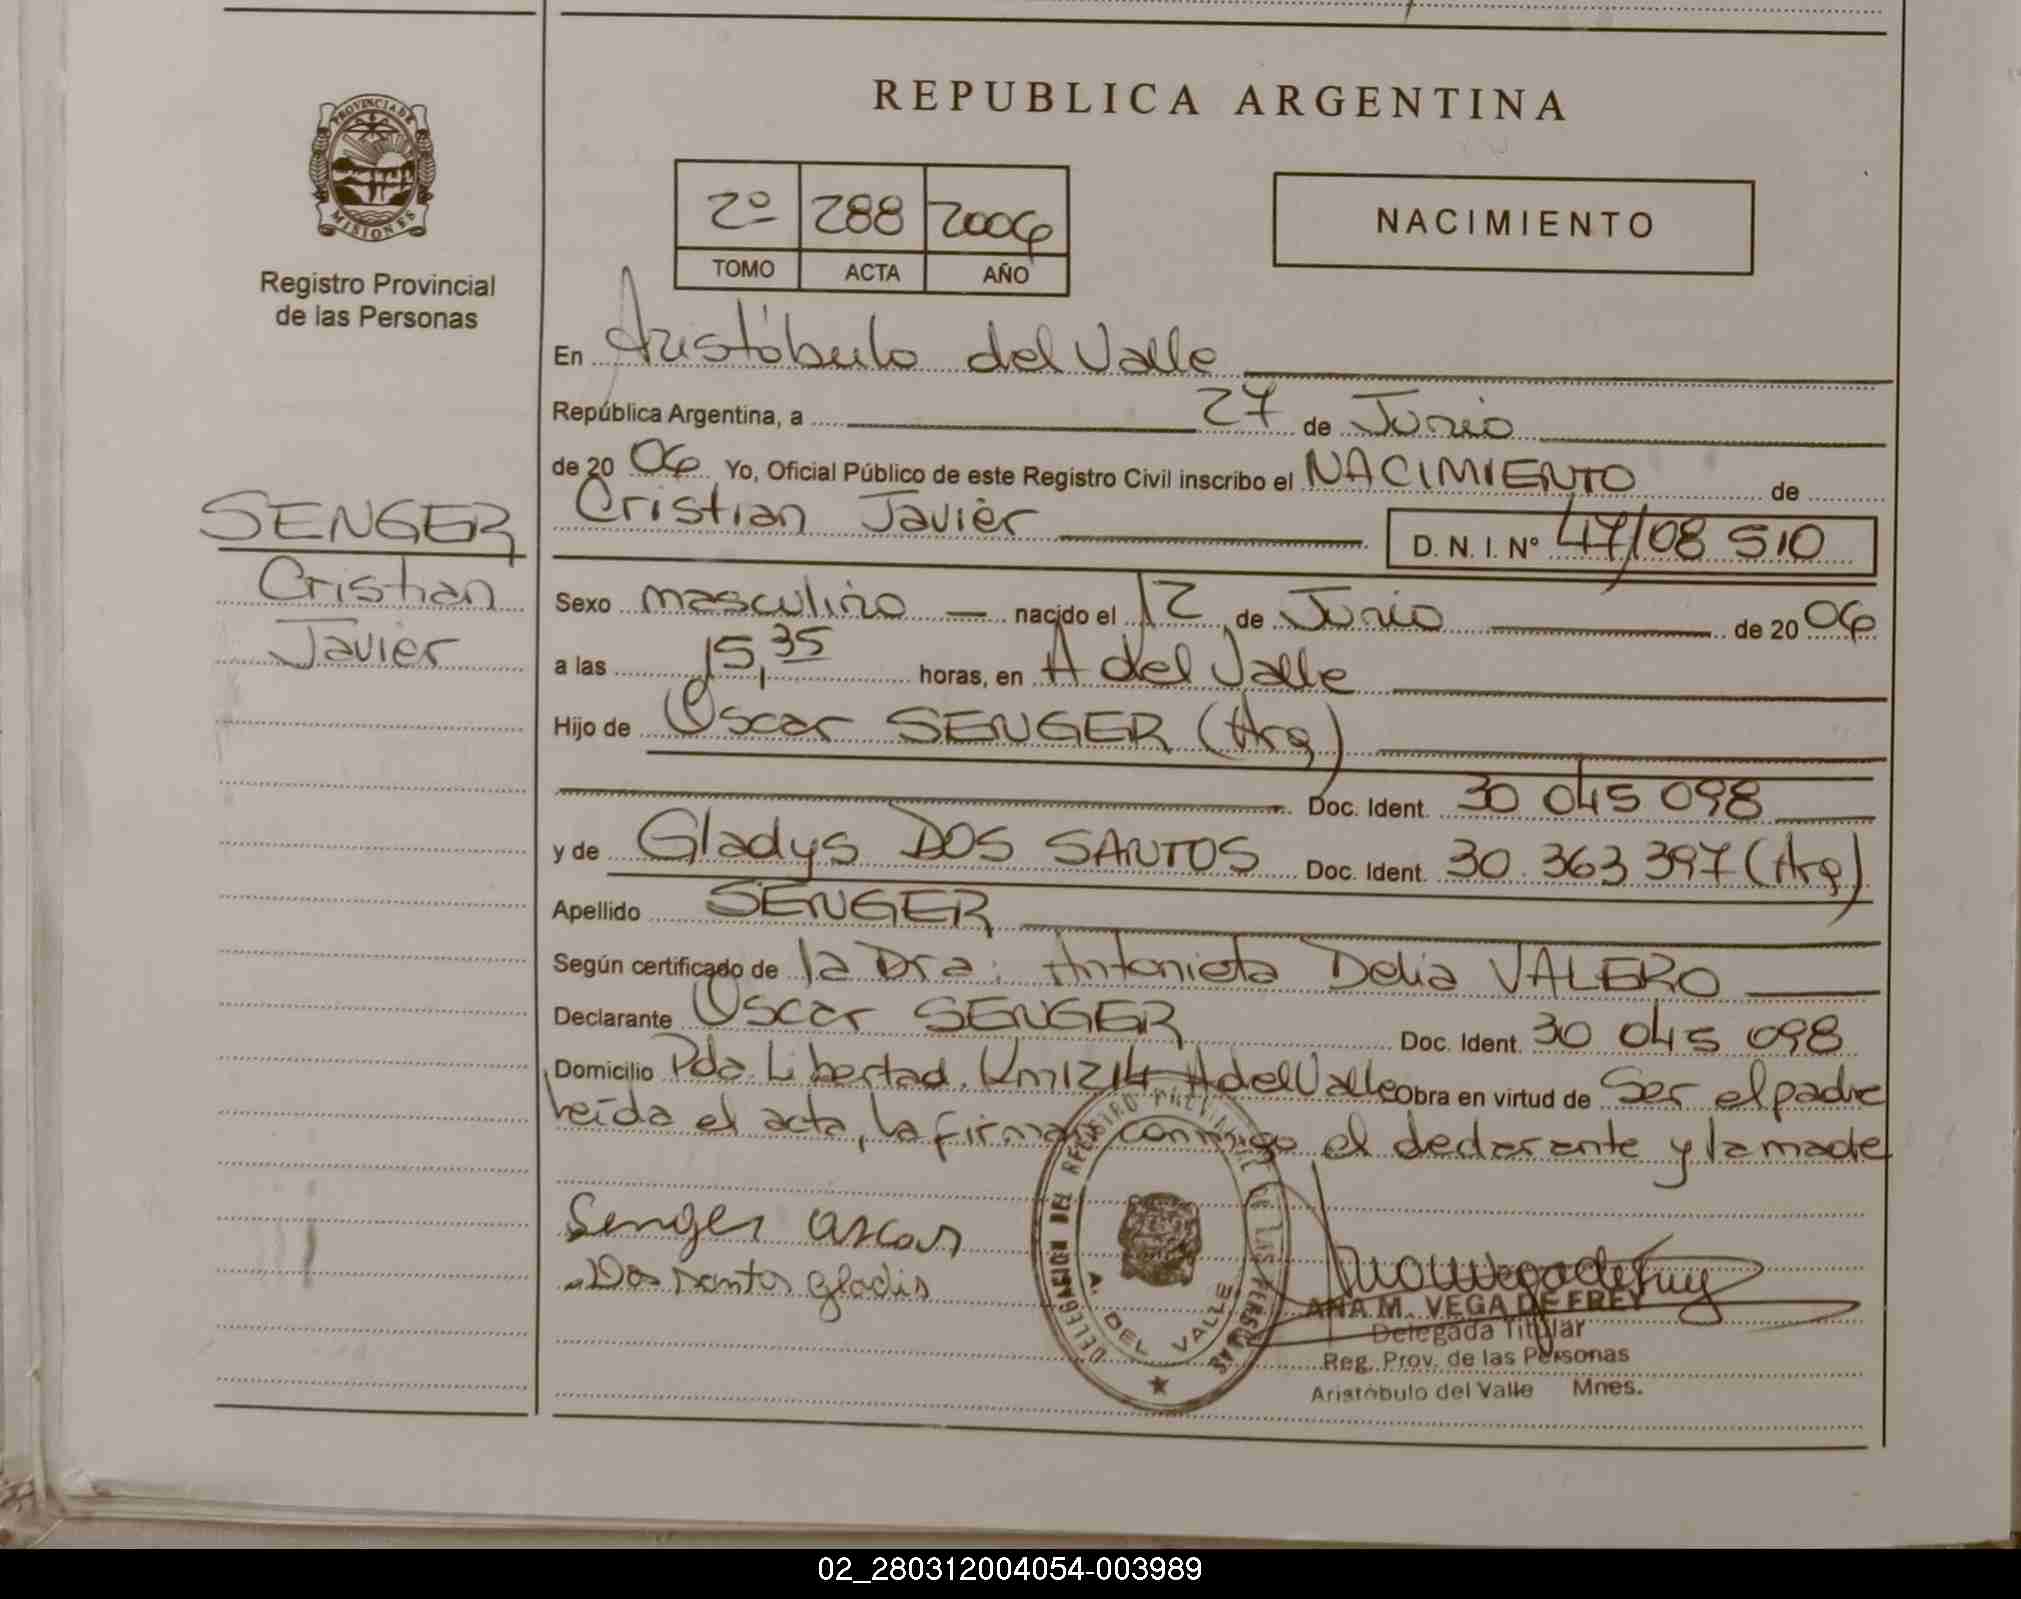 REPUBLICA ARGENTINA
PROVINCIA DE
MISIONES
Registro Provincial
de las Personas
2º 288 2006
TOMO ACTA AÑO
NACIMIENTO
En Aristóbulo del Valle
República Argentina, a 27 de Junio
de 20 06 Yo, Oficial Público de este Registro Civil inscribo el NACIMIENTO de
Cristian Javier D. N. I. Nº 47108 510
SENGER
Cristian
Javier
Sexo masculino nacido el 12 de Junio de 20 06
a las 15,35 horas, en A del Valle
Hijo de Oscar SENGER (Arg)
Doc. Ident. 30 045 098
y de Gladys DOS SANTOS Doc. Ident. 30.363 397 (Arg)
Apellido SENGER
Según certificado de la Dra. Antonieta Delia VALERO
Declarante Oscar SENGER Doc. Ident. 30 045 098
Domicilio Pda Libertad. Km 1214 A del Valle Obra en virtud de Ser el padre
leída el acta, la firman conmigo el declarante y la madre
Senger Oscar
Dos santos gladis
DELEGACION DEL REGISTRO PROVINCIAL DE LAS PERSONAS
A. DEL VALLE
ANA M. VEGA DE FREY
Delegada Titular
Reg. Prov. de las Personas
Aristóbulo del Valle Mnes.
02_280312004054-003989